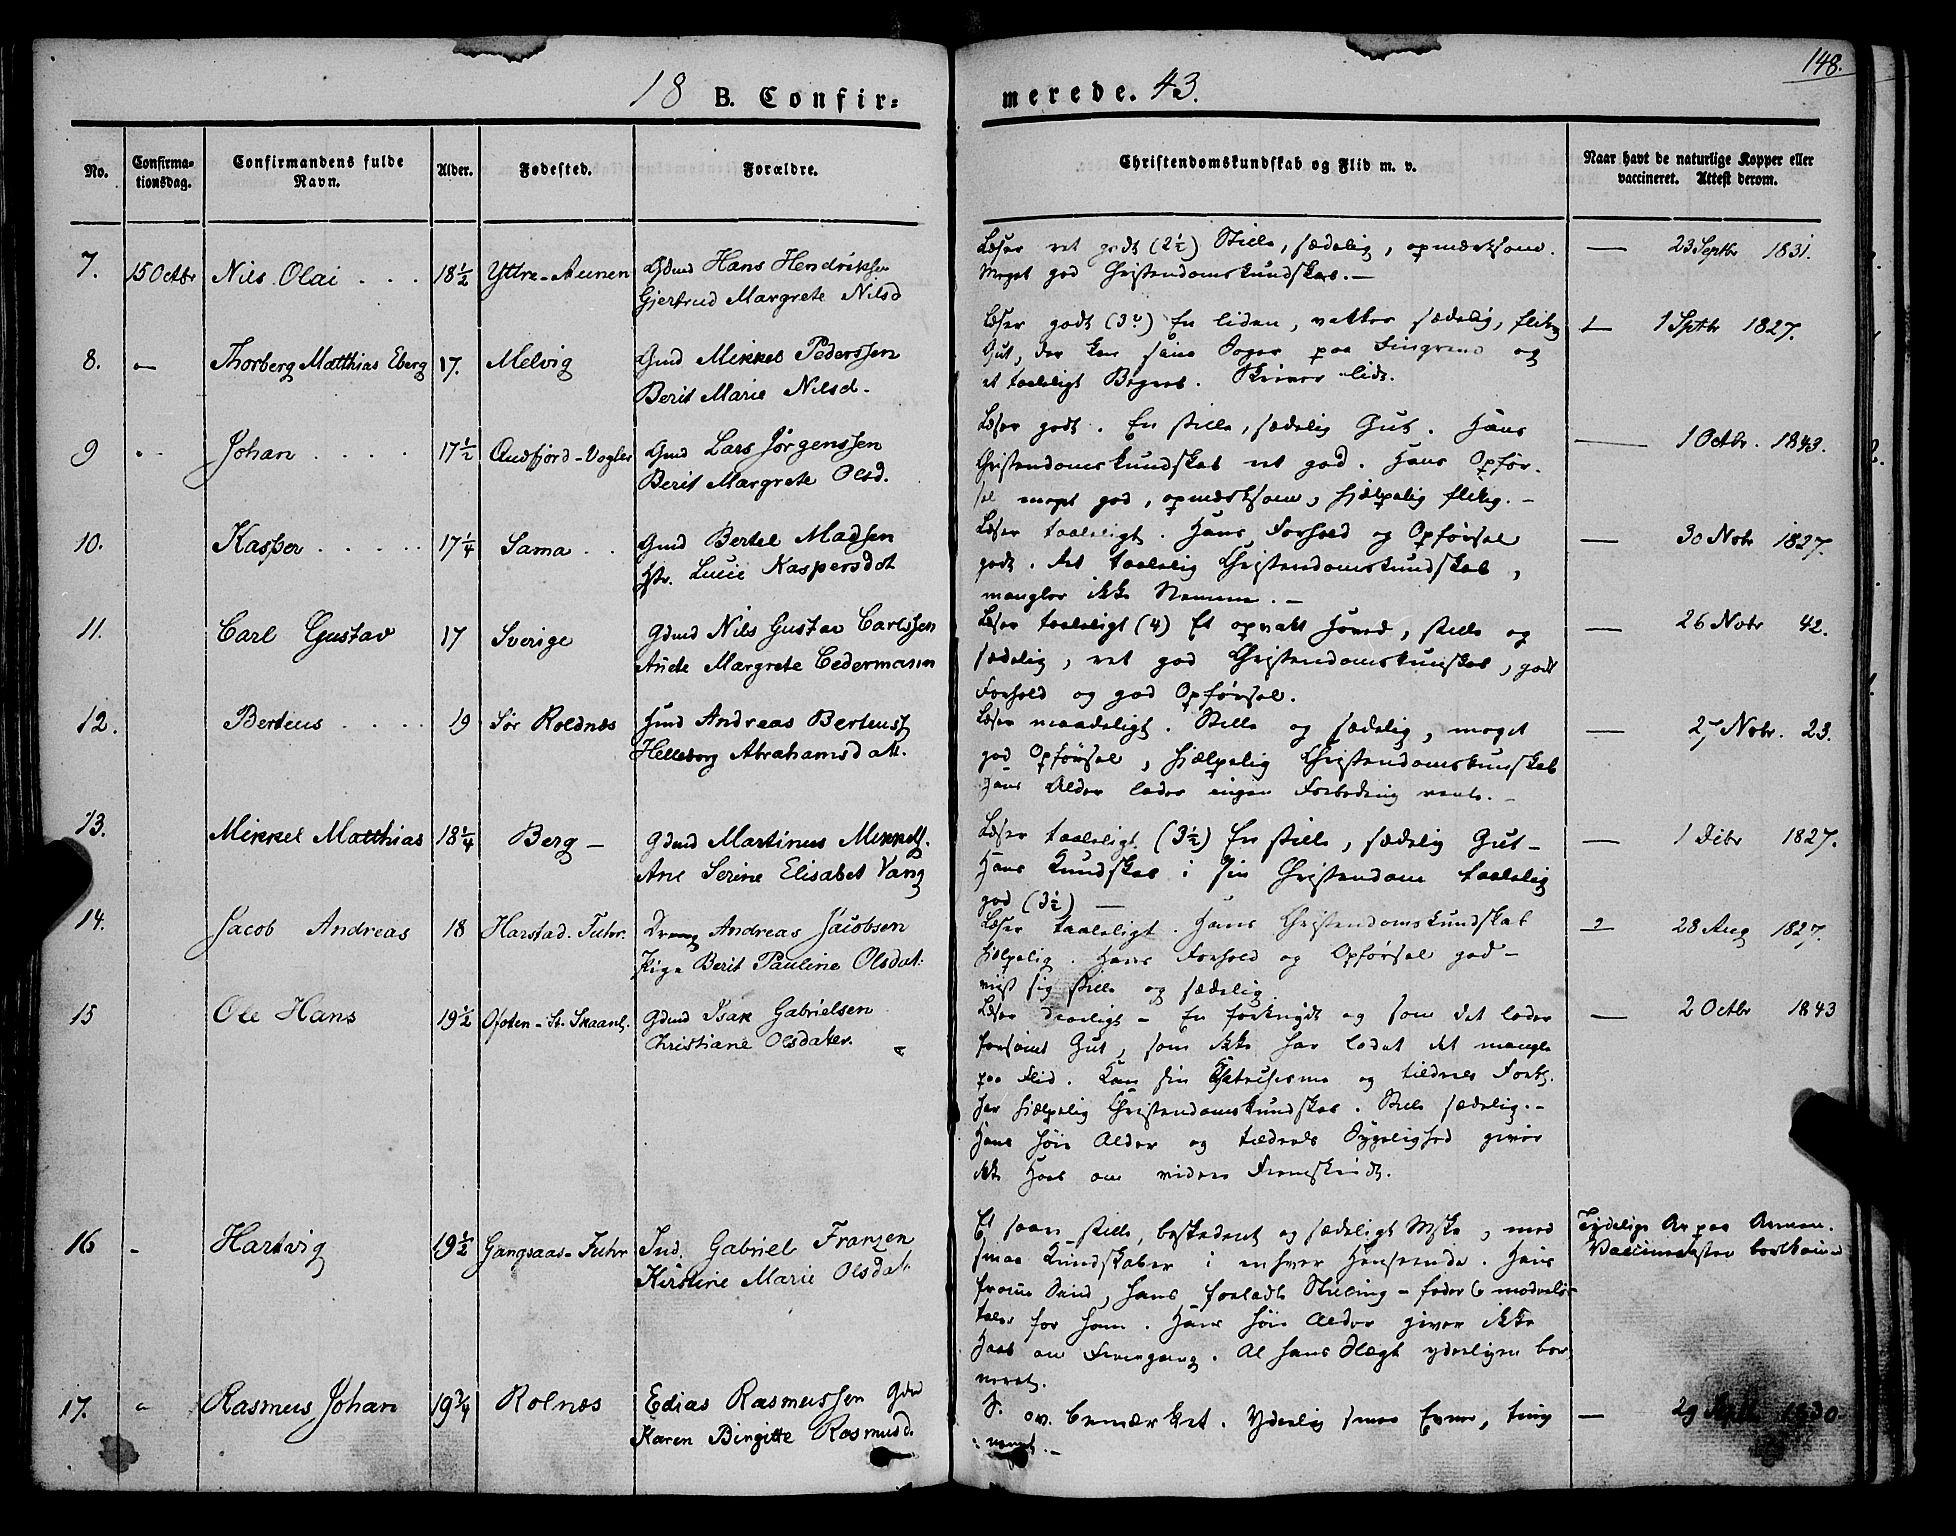 148.
18 B. Confir= merede. 43.
No.
Confirma=
tionsdag.
Confirmandens fulde
Navn.
Alder.
Fødested.
Forældre.
Christendomskundskab og Flid m. v.
Naar havt de naturlige Kopper eller
vaccineret. Attest derom.
7. 15 Octbr Nils Olai . . . 18½ Yttre-Aunen Gdmd Hans Hendriksen
Gjertrud Margrete Nilsd
Læser ret godt (2½) Stille, sædelig, opmærksom.
Meget god Christendomskundskab. —
— 23 Septbr 1831.
8. — Thorberg Matthias Eberg 17. Melvig Gmd Mikkel Pederssen
Berit Marie Nilsd.
Læser godt (3) En liden, vakker sædelig, flittig
Gut, der kan sine Bøger paa Fingrene og
et taaleligt Begreb. Skriver lidt.
1 Sptbr 1827.
9 Johan . . . . 17½ Qudfjord-Vogler Gmd Lars Jørgenssen
Berit Margrete Olsd.
Læser godt. En stille, sædelig Gut. Hans
Christendomskundskab ret god. Hans Opfør-
sel meget god, opmærksom, hjælpelig flittig. —
— 1 Octbr. 1843.
10. Kasper . . . . . 17¼ Sama . . Gmd Bertel Madsen
Lucie Kaspersdot
Læser taaleligt. Hans Forhold og Opførsel
godt. Ret taalelig Christendomskundskab,
mangler ikke Nemme. —
— 30 Novbr 1827.
11. Carl Gustav 17 Sverige Gdmd Nils Gustav Carlssen
Margrete Cedermann
Læser taaleligt (4) Et opvakt Hoved, stille og
sædelig, ret god Christendomskundskab, godt
Forhold og god Opførsel.
— 26 Novbr 42.
12. Berteus . . . . 19 Sør Roldnæs Andreas Berteuss
Helleborg Abrahamsdatt.
Læser maadeligt. Stille og sædelig, meget
god Opførsel, hjælpelig Christendomskundskab
Hans Alder lader ingen Forbedring vente. —
— 27 Novbr. 23.
13. Mikkel Matthias 18¼ Berg — Gdmd Martinus Mikkels.
Ane Serine Elisabet Vang
Læser taaleligt (3½) En stille, sædelig Gut —
Hans Kundskab i sin Christendom taalelig
god (3½) —
— 1 Debr 1827.
14. Jacob Andreas 18 Harstad. Andreas Jacobsen
Pige Berit Pauline Olsdat.
Læser taaleligt. Hans Christendomskundskab
hjælpelig. Hans Forhold og Opførsel god —
viist sig stille og sædelig
2 28 Aug 1827.
15 Ole Hans 19½ Ofoten - St. Skaanl. Gdmd Isak Gabrielsen
Christiane Olsdater.
Læser daarligt — En forknyt og som det lader
forsømt Gut, som ikke har ladet det mangle
paa Flid. Kan sin Catechisme og tildeels Fork.
Har hjælpelig Christendomskundskab. Stille sædelig. —
Hans høie Alder og tildeels Sygelighed giver
ikke Haab om videre Fremskridt.
— 2 Octbr 1843
16 - Hartvig 19½ Gangsaas - Ind. Gabriel Franzen
Kirstine Marie Olsdat.
Et saare stille, beskedent og sædeligt Mske, med
smaa Kundskaber i enhver Henseende. Hans
fromme Sind, hans forladte Stilling — fader & moderløs
taler for ham. Hans høie Alder giver ikke
Haab om Fremgang. Al hans Slægt yderligen bor-
neret.
Tydelige Ar paa Armen.
Vaccineattesten bortkommen
17. Rasmus Johan 19¾ Rolnæs Edias Rasmussen Gdmd
Karen Birgitte Rasmusd.
S. ov. bemærket. Yderlig smaa Evner,
— 29 1830.